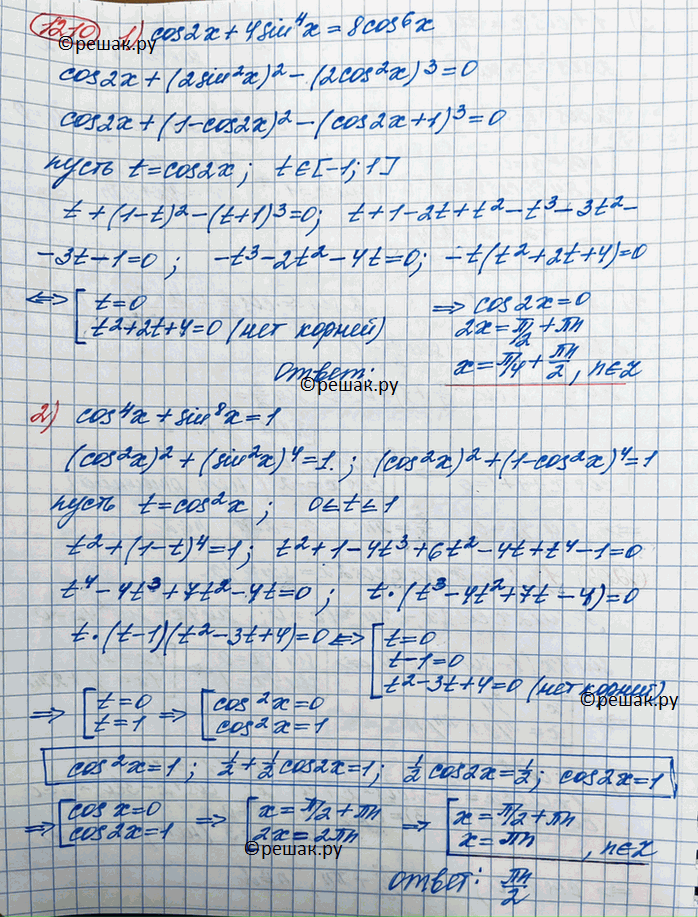 1210 1) cos2x + 4sin⁴x = 8cos⁶x
©решак.ру
cos2x + (2sin²x)² - (2cos²x)³ = 0
cos2x + (1-cos2x)² - (cos2x+1)³ = 0
пусть t = cos2x ; t ∈ [-1; 1]
t + (1-t)² - (t+1)³ = 0; t + 1 - 2t + t² - t³ - 3t² -
- 3t - 1 = 0 ; -t³ - 2t² - 4t = 0; -t(t² + 2t + 4) = 0
<=> [ t = 0 => cos2x = 0
t² + 2t + 4 = 0 (нет корней) 2x = π/2 + πn
ответ: x = π/4 + πn/2 , n∈Z
©решак.ру
2) cos⁴x + sin⁸x = 1
(cos²x)² + (sin²x)⁴ = 1. ; (cos²x)² + (1-cos²x)⁴ = 1
пусть t = cos²x ; 0 ≤ t ≤ 1
t² + (1-t)⁴ = 1 ; t² + 1 - 4t³ + 6t² - 4t + t⁴ - 1 = 0
t⁴ - 4t³ + 7t² - 4t = 0 ; t · (t³ - 4t² + 7t - 4) = 0
t · (t-1)(t² - 3t + 4) = 0 <=> [ t = 0
t - 1 = 0
t² - 3t + 4 = 0 (нет корней)
©решак.ру
=> [ t = 0 => [ cos²x = 0
t = 1 cos²x = 1
cos²x = 1 ; 1/2 + 1/2 cos2x = 1 ; 1/2 cos2x = 1/2 ; cos2x = 1
=> [ cos x = 0 => [ x = π/2 + πn => [ x = π/2 + πn
cos2x = 1 2x = 2πn x = πn , n∈Z
©решак.ру
ответ: πn/2